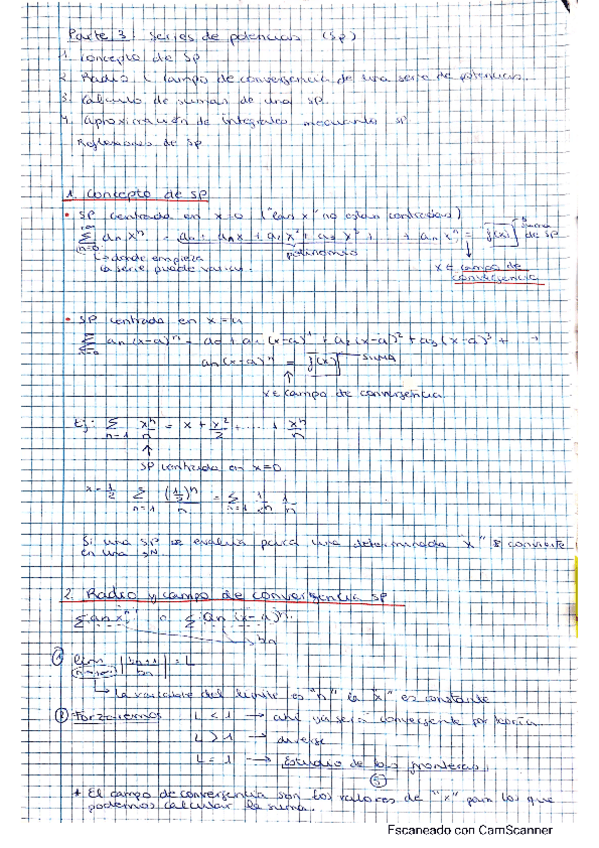 Parte 3: Series de potencias (SP)
1. Concepto de SP
2. Radio y campo de convergencia de una serie de potencias.
3. Calculo de sumas de una SP.
4. Aproximación de integrales mediante SP
Reflexiones de SP
1. Concepto de SP
• SP centrada en x=0 ("las x" no estan centradas)
∞ Σ n=0 an xⁿ = a0 + a1x + a2x² + a3x³ + ... + an xⁿ = f(x) suma de SP
↳ donde empieza la serie puede variar.
polinomio
x ∈ campo de convergencia
• SP centrada en x=a
∞ Σ n=0 an (x-a)ⁿ = a0 + a1 (x-a)¹ + a2 (x-a)² + a3 (x-a)³ + ...
an (x-a)ⁿ = f(x) SUMA
x ∈ campo de convergencia
Ej: Σ n=1 xⁿ/n = x + x²/2 + ... + xⁿ/n
SP centrada en x=0
x=1/2 Σ n=1 (1/2)ⁿ/n = Σ n=1
Si una SP se evalua para una determinada "x" se convierte
en una SN
2. Radio y campo de convergencia SP
Σ an xⁿ o Σ an (x-a)ⁿ
bn
① lim n→∞ |bn+1/bn| = L
↳ la variable del limite es "n" la "x" es constante
② Forzaremos L < 1 → ahí ya será convergente por teoría
L > 1 → diverge
L = 1 → Estudio de las fronteras
* El campo de convergencia son los valores de "x" para los que
podemos calcular la suma.
Escaneado con CamScanner